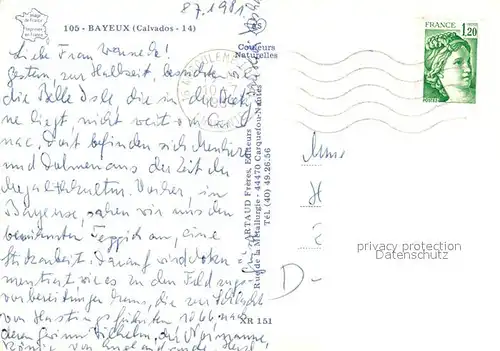 8.7.1981
Image de France
105 - BAYEUX (Calvados - 14)
Couleurs Naturelles
FRANCE
1,20
Liebe Frau
gestern, zur Halbzeit, besuchten wir
die Belle Isle, die in der
ne liegt, nicht weit von Car
nac. Dort befinden sich Menhire
und Dolmen aus der Zeit der
Megalithkultur. Vorher, in
Bayeux, sahen wir uns den
berühmten Teppich an, eine
Stickarbeit. Darauf wird doku
mentiert wie es zu den Feldzugs-
vorbereitungen kam, die zur Schlacht
von Hastings führten 1066
deren gewinnt Wilhelm, der Normanne,
König von
ARTAUD Frères, Editeurs
Rue de la Métallurgie - 44470 Carquefou-Nantes
Tél. (40) 49.26.56
XR 151
H
D-
privacy protection
Datenschutz